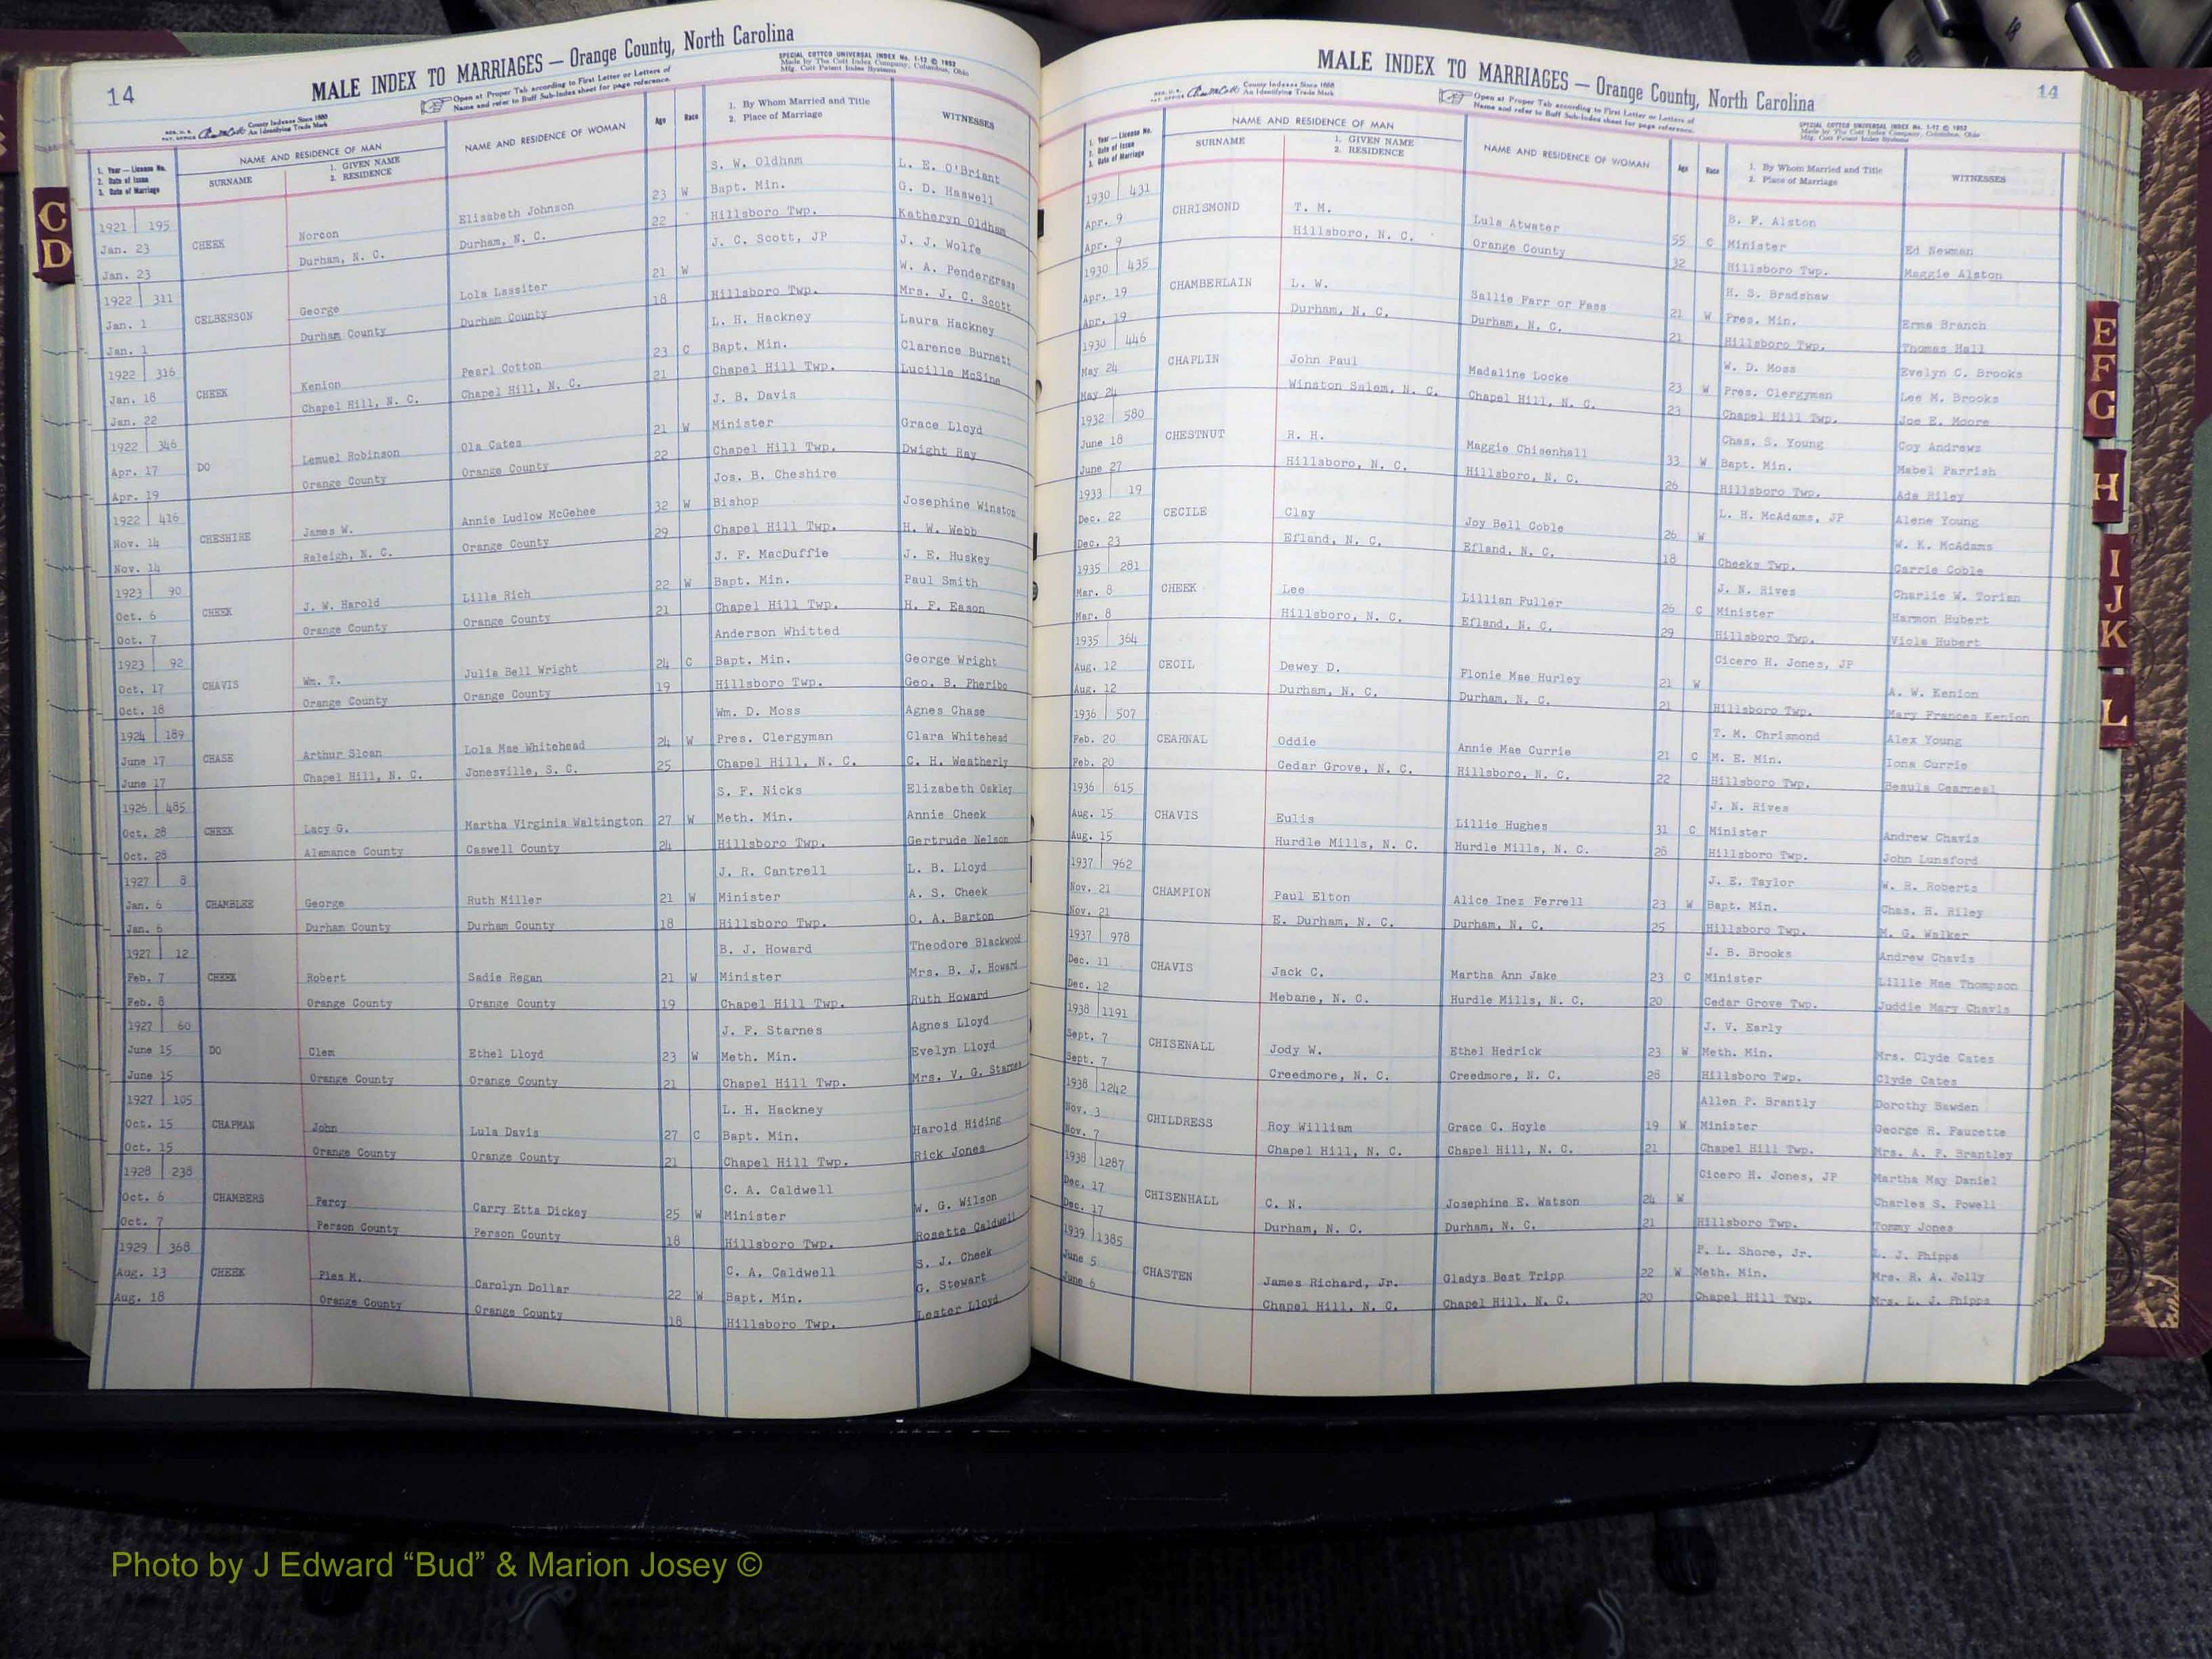 14
MALE INDEX TO MARRIAGES — Orange County, North Carolina
Open at Proper Tab according to First Letter or Letters of
Name and refer to Buff Sub-Index sheet for page reference.
SPECIAL COTTCO UNIVERSAL INDEX No. 1-12 © 1952
Made by The Cott Index Company, Columbus, Ohio
Mfg. Cott Patent Index Systems
County Indexes Since 1888
An Identifying Trade Mark
1. Year — License No.
2. Date of Issue
3. Date of Marriage
NAME AND RESIDENCE OF MAN
SURNAME
1. GIVEN NAME
2. RESIDENCE
NAME AND RESIDENCE OF WOMAN
Age
Race
1. By Whom Married and Title
2. Place of Marriage
WITNESSES
S. W. Oldham L. E. O'Briant
1921 195 Elisabeth Johnson 23 W Bapt. Min. G. D. Haswell
Jan. 23 CHEEK Norcon Durham, N. C. 22 Hillsboro Twp. Katheryn Oldham
Jan. 23 Durham, N. C. J. C. Scott, JP J. J. Wolfe
1922 311 Lola Lassiter 21 W W. A. Pendergrass
Jan. 1 CELBERSON George Durham County 18 Hillsboro Twp. Mrs. J. C. Scott
Jan. 1 Durham County L. H. Hackney Laura Hackney
1922 316 Pearl Cotton 23 C Bapt. Min. Clarence Burnett
Jan. 18 CHEEK Kenion Chapel Hill, N. C. 21 Chapel Hill Twp. Lucille McSine
Jan. 22 Chapel Hill, N. C. J. B. Davis
1922 346 Ola Cates 21 W Minister Grace Lloyd
Apr. 17 DO Lemuel Robinson Orange County 22 Chapel Hill Twp. Dwight Ray
Apr. 19 Orange County Jos. B. Cheshire
1922 416 Annie Ludlow McGehee 32 W Bishop Josephine Winston
Nov. 14 CHESHIRE James W. Orange County 29 Chapel Hill Twp. H. W. Webb
Nov. 14 Raleigh, N. C. J. F. MacDuffie J. E. Huskey
1923 90 Lilla Rich 22 W Bapt. Min. Paul Smith
Oct. 6 CHEEK J. W. Harold Orange County 21 Chapel Hill Twp. H. F. Eason
Oct. 7 Orange County Anderson Whitted
1923 92 Julia Bell Wright 24 C Bapt. Min. George Wright
Oct. 17 CHAVIS Wm. T. Orange County 19 Hillsboro Twp. Geo. B. Pheribo
Oct. 18 Orange County Wm. D. Moss Agnes Chase
1924 189 Lola Mae Whitehead 24 W Pres. Clergyman Clara Whitehead
June 17 CHASE Arthur Sloan Jonesville, S. C. 25 Chapel Hill, N. C. C. H. Weatherly
June 17 Chapel Hill, N. C. S. F. Nicks Elizabeth Oakley
1926 485 Martha Virginia Waltington 27 W Meth. Min. Annie Cheek
Oct. 28 CHEEK Lacy G. Caswell County 24 Hillsboro Twp. Gertrude Nelson
Oct. 28 Alamance County J. R. Cantrell L. B. Lloyd
1927 8 Ruth Miller 21 W Minister A. S. Cheek
Jan. 6 CHAMBLEE George Durham County 18 Hillsboro Twp. O. A. Barton
Jan. 6 Durham County B. J. Howard Theodore Blackwood
1927 12 Sadie Regan 21 W Minister Mrs. B. J. Howard
Feb. 7 CHEEK Robert Orange County 19 Chapel Hill Twp. Ruth Howard
Feb. 8 Orange County J. F. Starnes Agnes Lloyd
1927 60 Ethel Lloyd 23 W Meth. Min. Evelyn Lloyd
June 15 DO Clem Orange County 21 Chapel Hill Twp. Mrs. V. G. Starnes
June 15 Orange County L. H. Hackney
1927 105 Lula Davis 27 C Bapt. Min. Harold Hiding
Oct. 15 CHAPMAN John Orange County 21 Chapel Hill Twp. Rick Jones
Oct. 15 Orange County C. A. Caldwell
1928 238 Carry Etta Dickey 25 W Minister W. G. Wilson
Oct. 6 CHAMBERS Percy Person County 18 Hillsboro Twp. Rosette Caldwell
Oct. 7 Person County C. A. Caldwell S. J. Cheek
1929 368 Carolyn Dollar 22 W Bapt. Min. G. Stewart
Aug. 13 CHEEK Ples M. Orange County 18 Hillsboro Twp. Lester Lloyd
Aug. 18 Orange County
14
MALE INDEX TO MARRIAGES — Orange County, North Carolina
Open at Proper Tab according to First Letter or Letters of
Name and refer to Buff Sub-Index sheet for page reference.
SPECIAL COTTCO UNIVERSAL INDEX No. 1-12 © 1952
Made by The Cott Index Company, Columbus, Ohio
Mfg. Cott Patent Index Systems
County Indexes Since 1888
An Identifying Trade Mark
1. Year — License No.
2. Date of Issue
3. Date of Marriage
NAME AND RESIDENCE OF MAN
SURNAME
1. GIVEN NAME
2. RESIDENCE
NAME AND RESIDENCE OF WOMAN
Age
Race
1. By Whom Married and Title
2. Place of Marriage
WITNESSES
1930 431 B. F. Alston
Apr. 9 CHRISMOND T. M. Lula Atwater 55 C Minister Ed Newman
Apr. 9 Hillsboro, N. C. Orange County 32 Hillsboro Twp. Maggie Alston
1930 435 H. S. Bradshaw
Apr. 19 CHAMBERLAIN L. W. Sallie Farr or Pass 21 W Pres. Min. Erma Branch
Apr. 19 Durham, N. C. Durham, N. C. 21 Hillsboro Twp. Thomas Hall
1930 446 W. D. Moss Evelyn C. Brooks
May 24 CHAPLIN John Paul Madeline Locke 23 W Pres. Clergyman Lee M. Brooks
May 24 Winston Salem, N. C. Chapel Hill, N. C. 23 Chapel Hill Twp. Joe E. Moore
1932 580 Chas. S. Young Coy Andrews
June 18 CHESTNUT R. H. Maggie Chisenhall 33 W Bapt. Min. Mabel Parrish
June 27 Hillsboro, N. C. Hillsboro, N. C. 26 Hillsboro Twp. Ada Riley
1933 19 L. H. McAdams, JP Alene Young
Dec. 22 CECILE Clay Joy Bell Coble 26 W W. K. McAdams
Dec. 23 Efland, N. C. Efland, N. C. 18 Cheeks Twp. Carrie Coble
1935 281 J. N. Rives Charlie W. Torian
Mar. 8 CHEEK Lee Lillian Fuller 26 C Minister Harmon Hubert
Mar. 8 Hillsboro, N. C. Efland, N. C. 29 Hillsboro Twp. Viola Hubert
1935 364 Cicero H. Jones, JP
Aug. 12 CECIL Dewey D. Flonie Mae Hurley 21 W A. W. Kenion
Aug. 12 Durham, N. C. Durham, N. C. 21 Hillsboro Twp. Mary Frances Kenion
1936 507 T. M. Chrismond Alex Young
Feb. 20 CEARNAL Oddie Annie Mae Currie 21 C M. E. Min. Iona Currie
Feb. 20 Cedar Grove, N. C. Hillsboro, N. C. 22 Hillsboro Twp. Beaula Cearneal
1936 615 J. N. Rives
Aug. 15 CHAVIS Eulis Lillie Hughes 31 C Minister Andrew Chavis
Aug. 15 Hurdle Mills, N. C. Hurdle Mills, N. C. 28 Hillsboro Twp. John Lunsford
1937 962 J. E. Taylor W. R. Roberts
Nov. 21 CHAMPION Paul Elton Alice Inez Ferrell 23 W Bapt. Min. Chas. H. Riley
Nov. 21 E. Durham, N. C. Durham, N. C. 25 Hillsboro Twp. M. G. Walker
1937 978 J. B. Brooks Andrew Chavis
Dec. 11 CHAVIS Jack C. Martha Ann Jake 23 C Minister Lillie Mae Thompson
Dec. 12 Mebane, N. C. Hurdle Mills, N. C. 20 Cedar Grove Twp. Juddie Mary Chavis
1938 1191 J. V. Early
Sept. 7 CHISENALL Jody W. Ethel Hedrick 23 W Meth. Min. Mrs. Clyde Cates
Sept. 7 Creedmore, N. C. Creedmore, N. C. 28 Hillsboro Twp. Clyde Cates
1938 1242 Allen P. Brantly Dorothy Bawden
Nov. 3 CHILDRESS Roy William Grace C. Hoyle 19 W Minister George R. Faucette
Nov. 7 Chapel Hill, N. C. Chapel Hill, N. C. 21 Chapel Hill Twp. Mrs. A. P. Brantley
1938 1287 Cicero H. Jones, JP Martha May Daniel
Dec. 17 CHISENHALL C. N. Josephine E. Watson 24 W Charles S. Powell
Dec. 17 Durham, N. C. Durham, N. C. 21 Hillsboro Twp. Tommy Jones
1939 1385 P. L. Shore, Jr. L. J. Phipps
June 5 CHASTEN James Richard, Jr. Gladys Best Tripp 22 W Meth. Min. Mrs. R. A. Jolly
June 6 Chapel Hill, N. C. Chapel Hill, N. C. 20 Chapel Hill Twp. Mrs. L. J. Phipps
C
D
E
F
G
H
I
J
K
L
Photo by J Edward “Bud” & Marion Josey ©